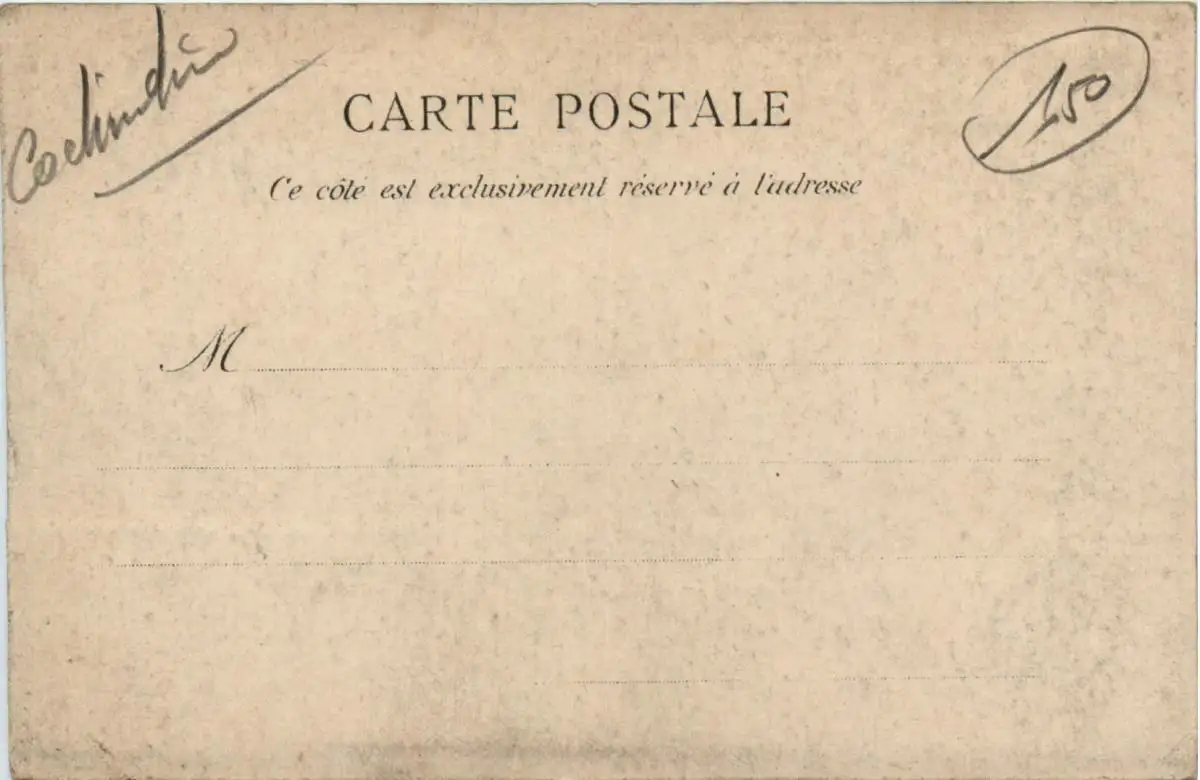 Cochinchine
150
CARTE POSTALE
Ce côté est exclusivement réservé à l'adresse
M